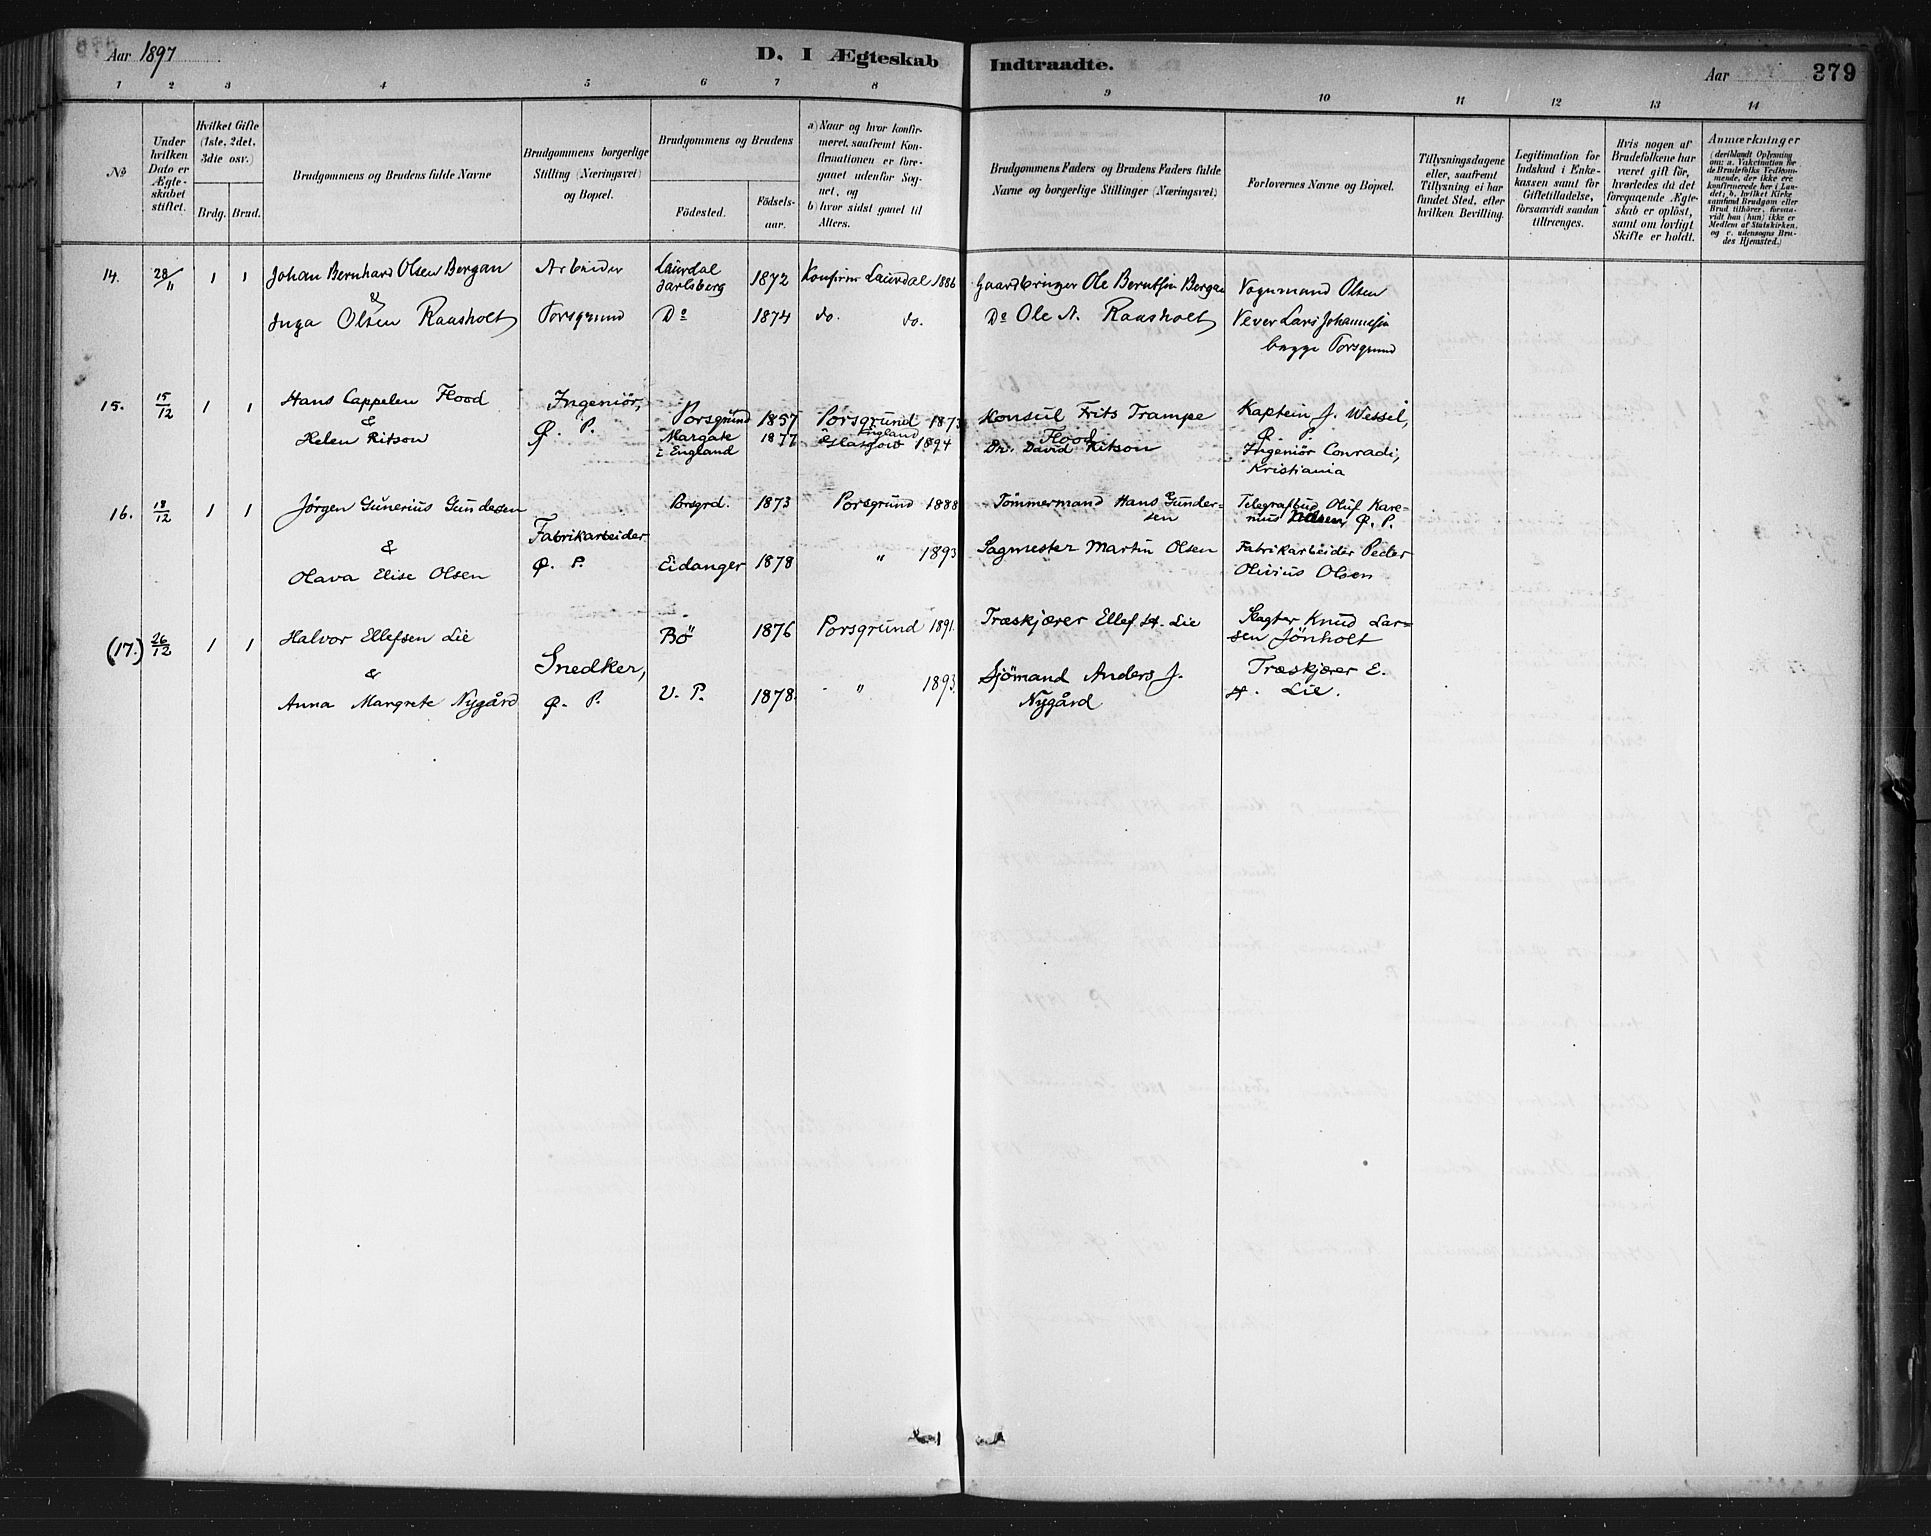 Aar 1897
D. I Ægteskab Indtraadte.
Aar
379
1 2 3 4 5 6 7 8 9 10 11 12 13 14
No
Under hvilken Dato er Ægteskabet stiftet.
Hvilket Gifte (1ste, 2det, 3die osv.)
Brdg. Brud.
Brudgommens og Brudens fulde Navne
Brudgommens borgerlige Stilling (Næringsvei) og Bopæl.
Brudgommens og Brudens
Födested.
Födsels-aar.
a) Naar og hvor konfirmeret, saafremt Konfirmationen er foregaaet udenfor Sognet, og
b) hvor sidst gaaet til Alters.
Brudgommens Faders og Brudens Faders fulde Navne og borgerlige Stillinger (Næringsvei)
Forlovernes Navne og Bopæl.
Tillysningsdagene eller, saafremt Tillysning ei har fundet Sted, efter hvilken Bevilling.
Legitimation for Indskud i Enkekassen samt for Giftetilladelse, forsaavidt saadan tiltrænges.
Hvis nogen af Brudefolkene har været gift för, hvorledes da det foregaaende Ægteskab er oplöst, samt om lovligt Skifte er holdt.
Anmærkninger
(deriblandt Oplysning om: a. Vakcination for de Brudefolks Vedkommende, der ikke ere konfirmerede her i Landet; b. hvilket Kirkesamfund Brudgom eller Brud tilhörer, forsaavidt han (hun) ikke er Medlem af Statskirken, og c. udensogns Brudes Hjemsted.)
14. 28/11 1 1 Johan Bernhard Olsen Bergan Arbeider Laurdal Jarlsberg 1872 Konfirm Laurdal 1886 Gaardbruger Ole Berntsen Bergan Vognmand Olsen
&
Inga Olsen Raasholt Porsgrund Do 1874 do. do. Do Ole A. Raasholt Vever Lars Johannesen
begge Porsgrund
15. 15/12 1 1 Hans Cappelen Flood Ingeniör, Porsgrund 1857 Porsgrund 1873 Konsul Frits Trampe Flood Kaptein J. Wessel,
&
Ø. P.
Helen Ritson Ø. P. Margate i England 1877 Glasgow England 1894 Dr. David Ritson Ingeniör Conradi,
Kristiania
16. 18/12 1 1 Jörgen Gunerius Gundesen Porsgrd. 1873 Porsgrund 1888 Tömmermand Hans Gundersen Telegrafbud Oluf Karenius Ø. P.
& Fabrikarbeider
Olava Elise Olsen Ø. P. Eidanger 1878 " 1893 Sagmester Martin Olsen Fabrikarbeider Peder
Olivius Olsen
(17.) 26/12 1 1 Halvor Ellefsen Lie Bö 1876 Porsgrund 1891. Træskjærer Ellef H. Lie Slagter Knud Larsen Jönholt
& Snedker,
Anna Margrete Nygård Ø. P. V. P. 1878. " 1893. Sjömand Anders J. Nygård Træskjærer E.
H. Lie.